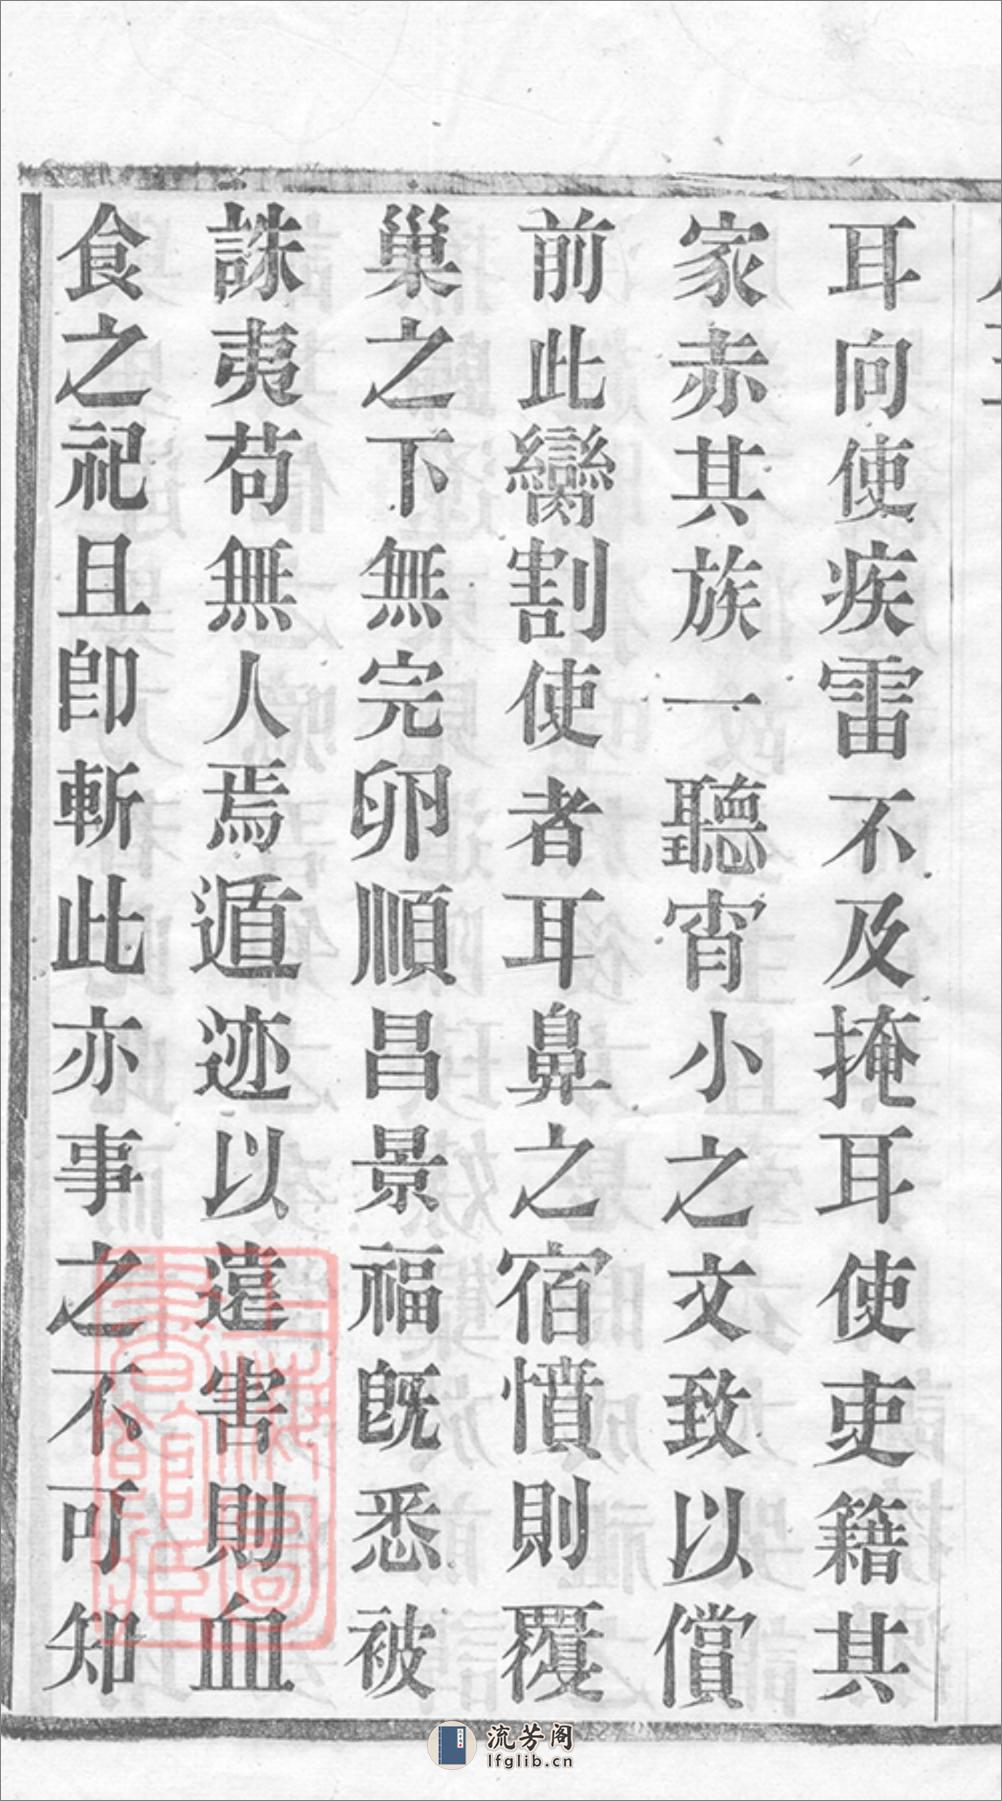 耳向使疾雷不及掩耳使吏籍其
家赤其族一聽宵小之文致以償
前此臠割使者耳鼻之宿憤則覆
巢之下無完卵順昌景福旣悉被
誅夷苟無人焉遁迹以遠害則血
食之祀且卽斬此亦事之不可知
上海圖書館藏
流芳阁
lfglib.cn